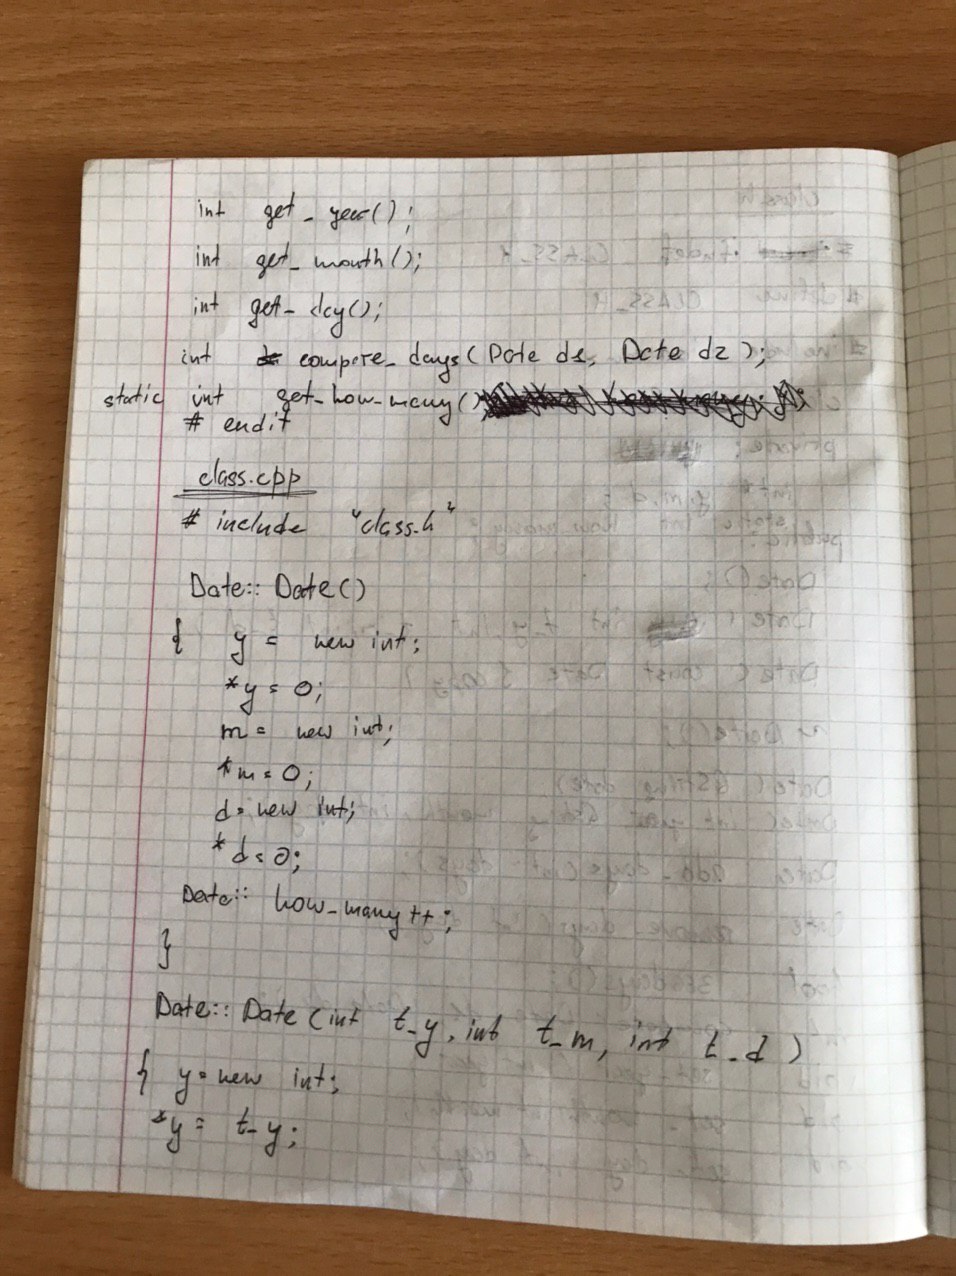 int get_year();
int get_month();
int get_day();
int compare_days(Date d1, Date d2);
static int get_how_many()
# endif
class.cpp
# include "class.h"
Date:: Date()
{ y = new int;
*y = 0;
m = new int;
*m = 0;
d = new int;
*d = 0;
Date:: how_many++;
}
Date:: Date (int t_y, int t_m, int t_d)
{ y = new int;
*y = t_y;